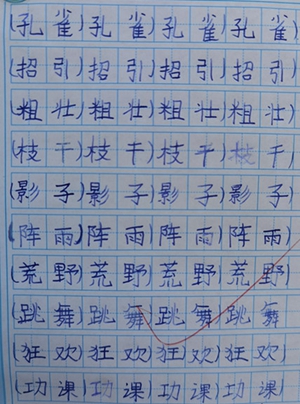 (孔雀)孔雀)孔雀)孔雀
(招引)招引)招引)招引)
(粗壮)粗壮)粗壮)粗壮)
(枝干)枝干)枝干)枝干
(影子)影子)影子)影子
(阵雨)阵雨)阵雨)阵雨)
(荒野)荒野)荒野)荒野
(跳舞)跳舞)跳舞)跳舞
(狂欢)狂欢)狂)欢)狂欢)
(功课)功课)功课)功课)